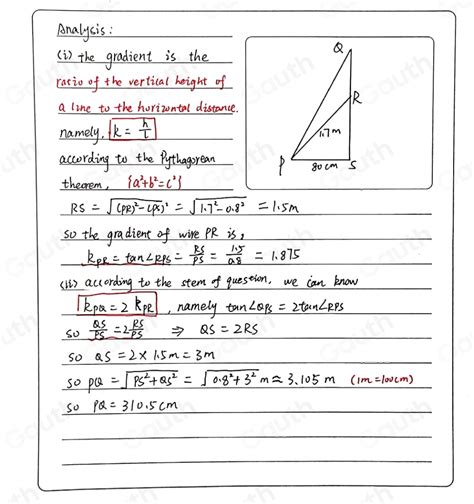 Analysis:
(i) the gradient is the
ratio of the vertical height of
a line to the horizontal distance.
namely, k = h/l
according to the Pythagorean
theorem, {a²+b²=c²}
Q
R
1.7m
P
80cm
S
RS = √((PR)²-(PS)²) = √(1.7²-0.8²) = 1.5m
so the gradient of wire PR is,
k_PR = tan∠RPS = RS/PS = 1.5/0.8 = 1.875
(ii) according to the stem of question, we can know
k_PQ = 2 k_PR, namely tan∠QPS = 2tan∠RPS
so QS/PS = 2RS/PS ⇒ QS = 2RS
so QS = 2 × 1.5m = 3m
so PQ = √(PS²+QS²) = √(0.8²+3²) m ≈ 3.105m (1m=100cm)
so PQ = 310.5cm